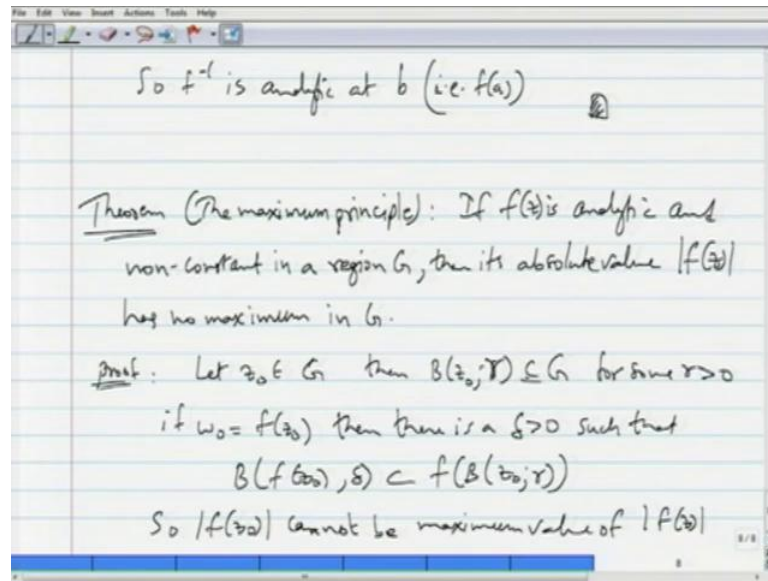 File Edit View Insert Actions Tools Help
So f⁻¹ is analytic at b (i.e. f(a))
Theorem (The maximum principle): If f(z) is analytic and
non-constant in a region G, then its absolute value |f(z)|
has no maximum in G.
Proof: Let z₀ ∈ G then B(z₀;r) ⊆ G for some r>0
if w₀ = f(z₀) then there is a δ>0 such that
B(f(z₀),δ) ⊂ f(B(z₀;r))
So |f(z₀)| cannot be maximum value of |f(z)|
8/8
8